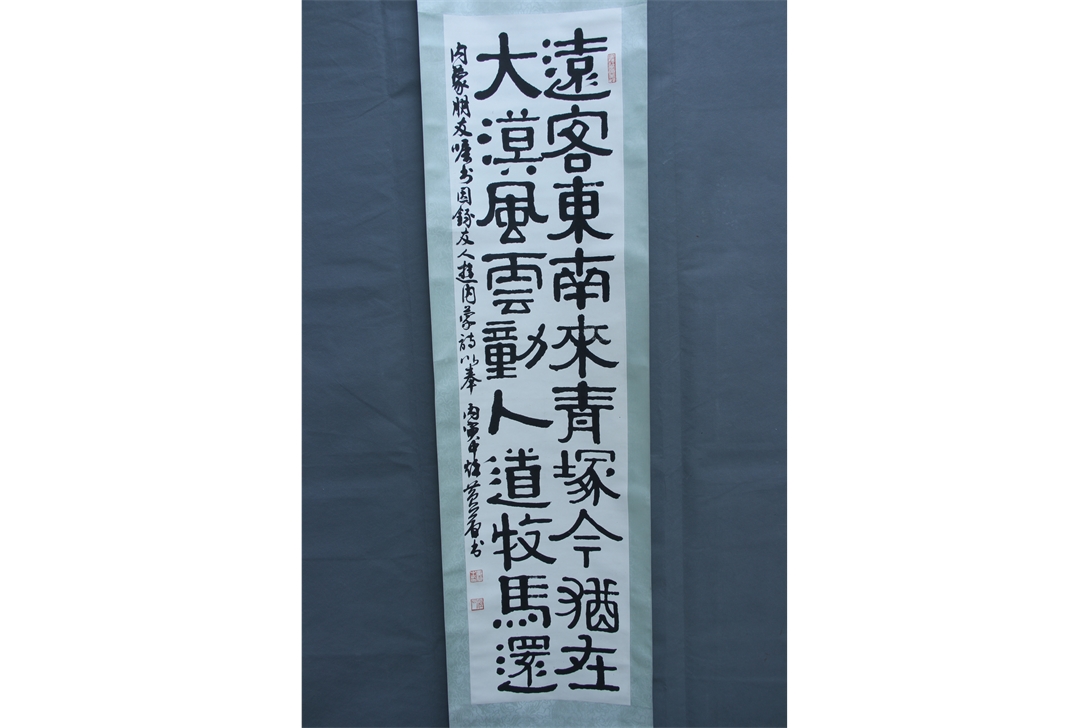 遠客東南來青塚今猶在
大漠風雲動人道牧馬還
內蒙朋友囑書因錄友人遊內蒙詩以奉 丙寅年 黃 書